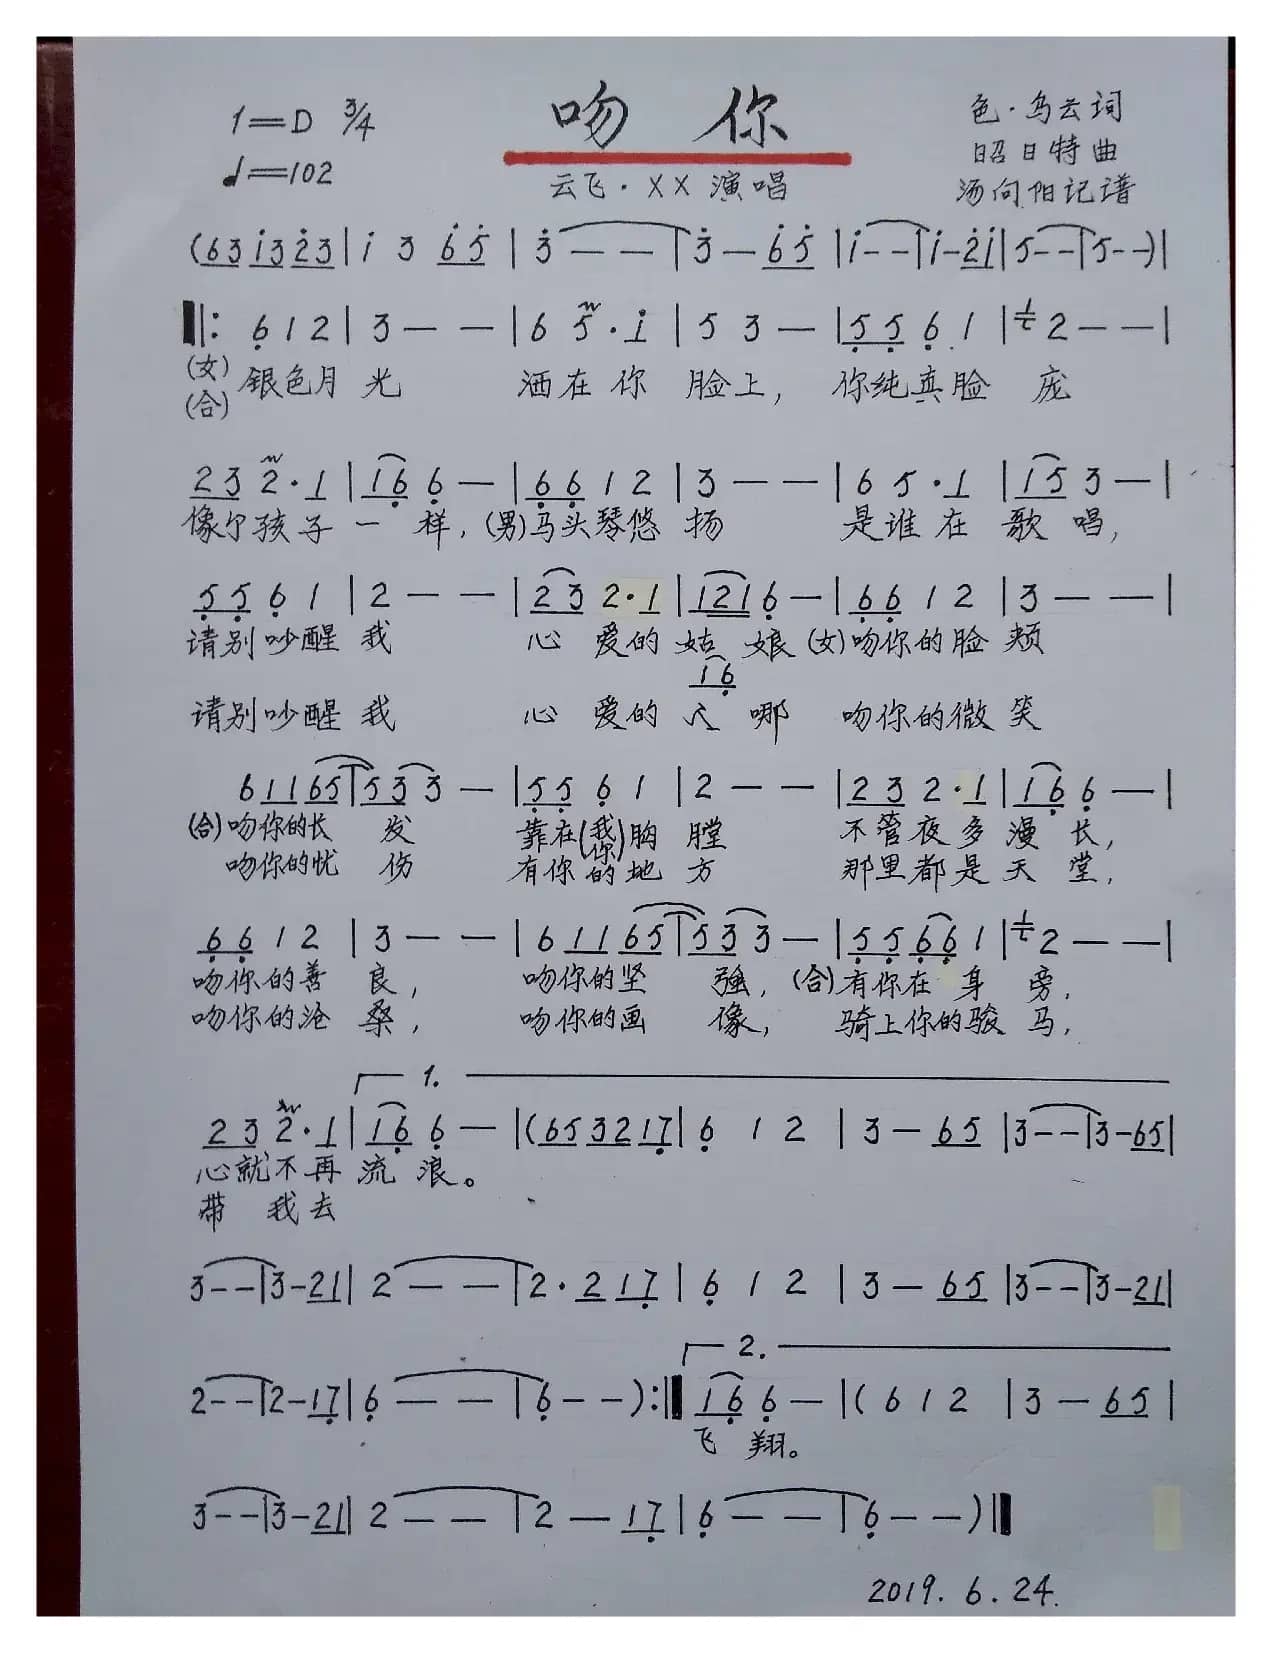 1=D 3/4
♩=102
吻 你
云飞·XX 演唱
色·乌云词
昭日特曲
汤向阳记谱
(63 i3 23 | i 3 65 | 3 — — | 3 — 65 | i - - | i - 2i | 5 - - | 5 - - ) |
‖: 6 1 2 | 3 — — | 6 5 · i | 5 3 — | 5 5 6 1 | 2 — — |
(女) 银色月光 洒在你 脸上, 你纯真脸 庞
(合)
2 3 2 · 1 | 1 6 6 — | 6 6 1 2 | 3 — — | 6 5 · 1 | 1 5 3 — |
像个孩子一 样, (男)马头琴悠 扬 是谁在 歌 唱,
5 5 6 1 | 2 — — | 2 3 2 · 1 | 1 2 1 6 — | 6 6 1 2 | 3 — — |
请别吵醒 我 心 爱的 姑 娘 (女)吻你的脸 颊
1 6
请别吵醒 我 心 爱的 人 哪 吻你的微 笑
6 1 1 6 5 | 5 3 3 — | 5 5 6 1 | 2 — — | 2 3 2 · 1 | 1 6 6 — |
(合)吻你的长 发 靠在(我你)胸 膛 不管夜多漫 长,
吻你的忧 伤 有你的地 方 那里都是天 堂,
6 6 1 2 | 3 — — | 6 1 1 6 5 | 5 3 3 — | 5 5 6 6 1 | 2 — — |
吻你的善 良, 吻你的坚 强, (合)有你在 身 旁,
吻你的沧 桑, 吻你的画 像, 骑上你的骏 马,
1.
2 3 2 · 1 | 1 6 6 — | (65 32 17 | 6 1 2 | 3 — 65 | 3 - - | 3 - 65 |
心就不再流 浪。
带 我去
3 - - | 3 - 21 | 2 — — | 2 · 2 17 | 6 1 2 | 3 — 65 | 3 - - | 3 - 21 |
2.
2 - - | 2 - 17 | 6 — — | 6 - - ) :‖ 1 6 6 — | ( 6 1 2 | 3 — 65 |
飞 翔。
3 - - | 3 - 21 | 2 — — | 2 — 17 | 6 — — | 6 — — ) ‖
2019. 6. 24.